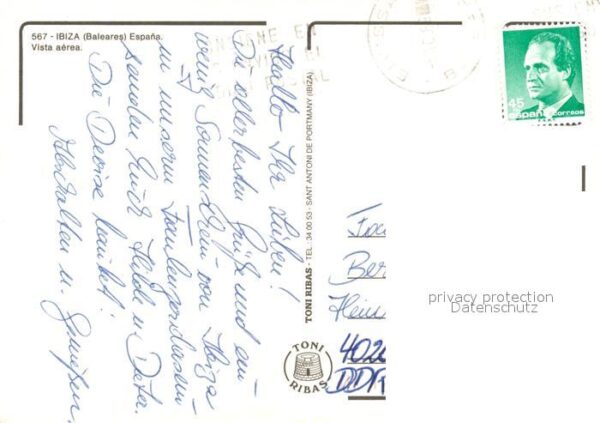 567 - IBIZA (Baleares) España.
Vista aérea.
Hallo Ihr Lieben!
Die allerbesten Grüße und ein
wenig Sonnenschein von Ibiza
in unserem
senden Euch Heide u. Peter.
Die Devise lautet:
Abschalten u. Genießen.
TONI RIBAS - TEL.: 34 00 53 - SANT ANTONI DE PORTMANY (IBIZA)
TONI
RIBAS
45
españa correos
Fa
Ber
Hein
402
DDR
privacy protection
Datenschutz